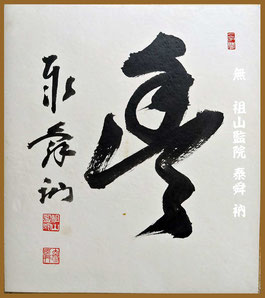 無
泰舜衲
無 祖山監院 泰舜 衲